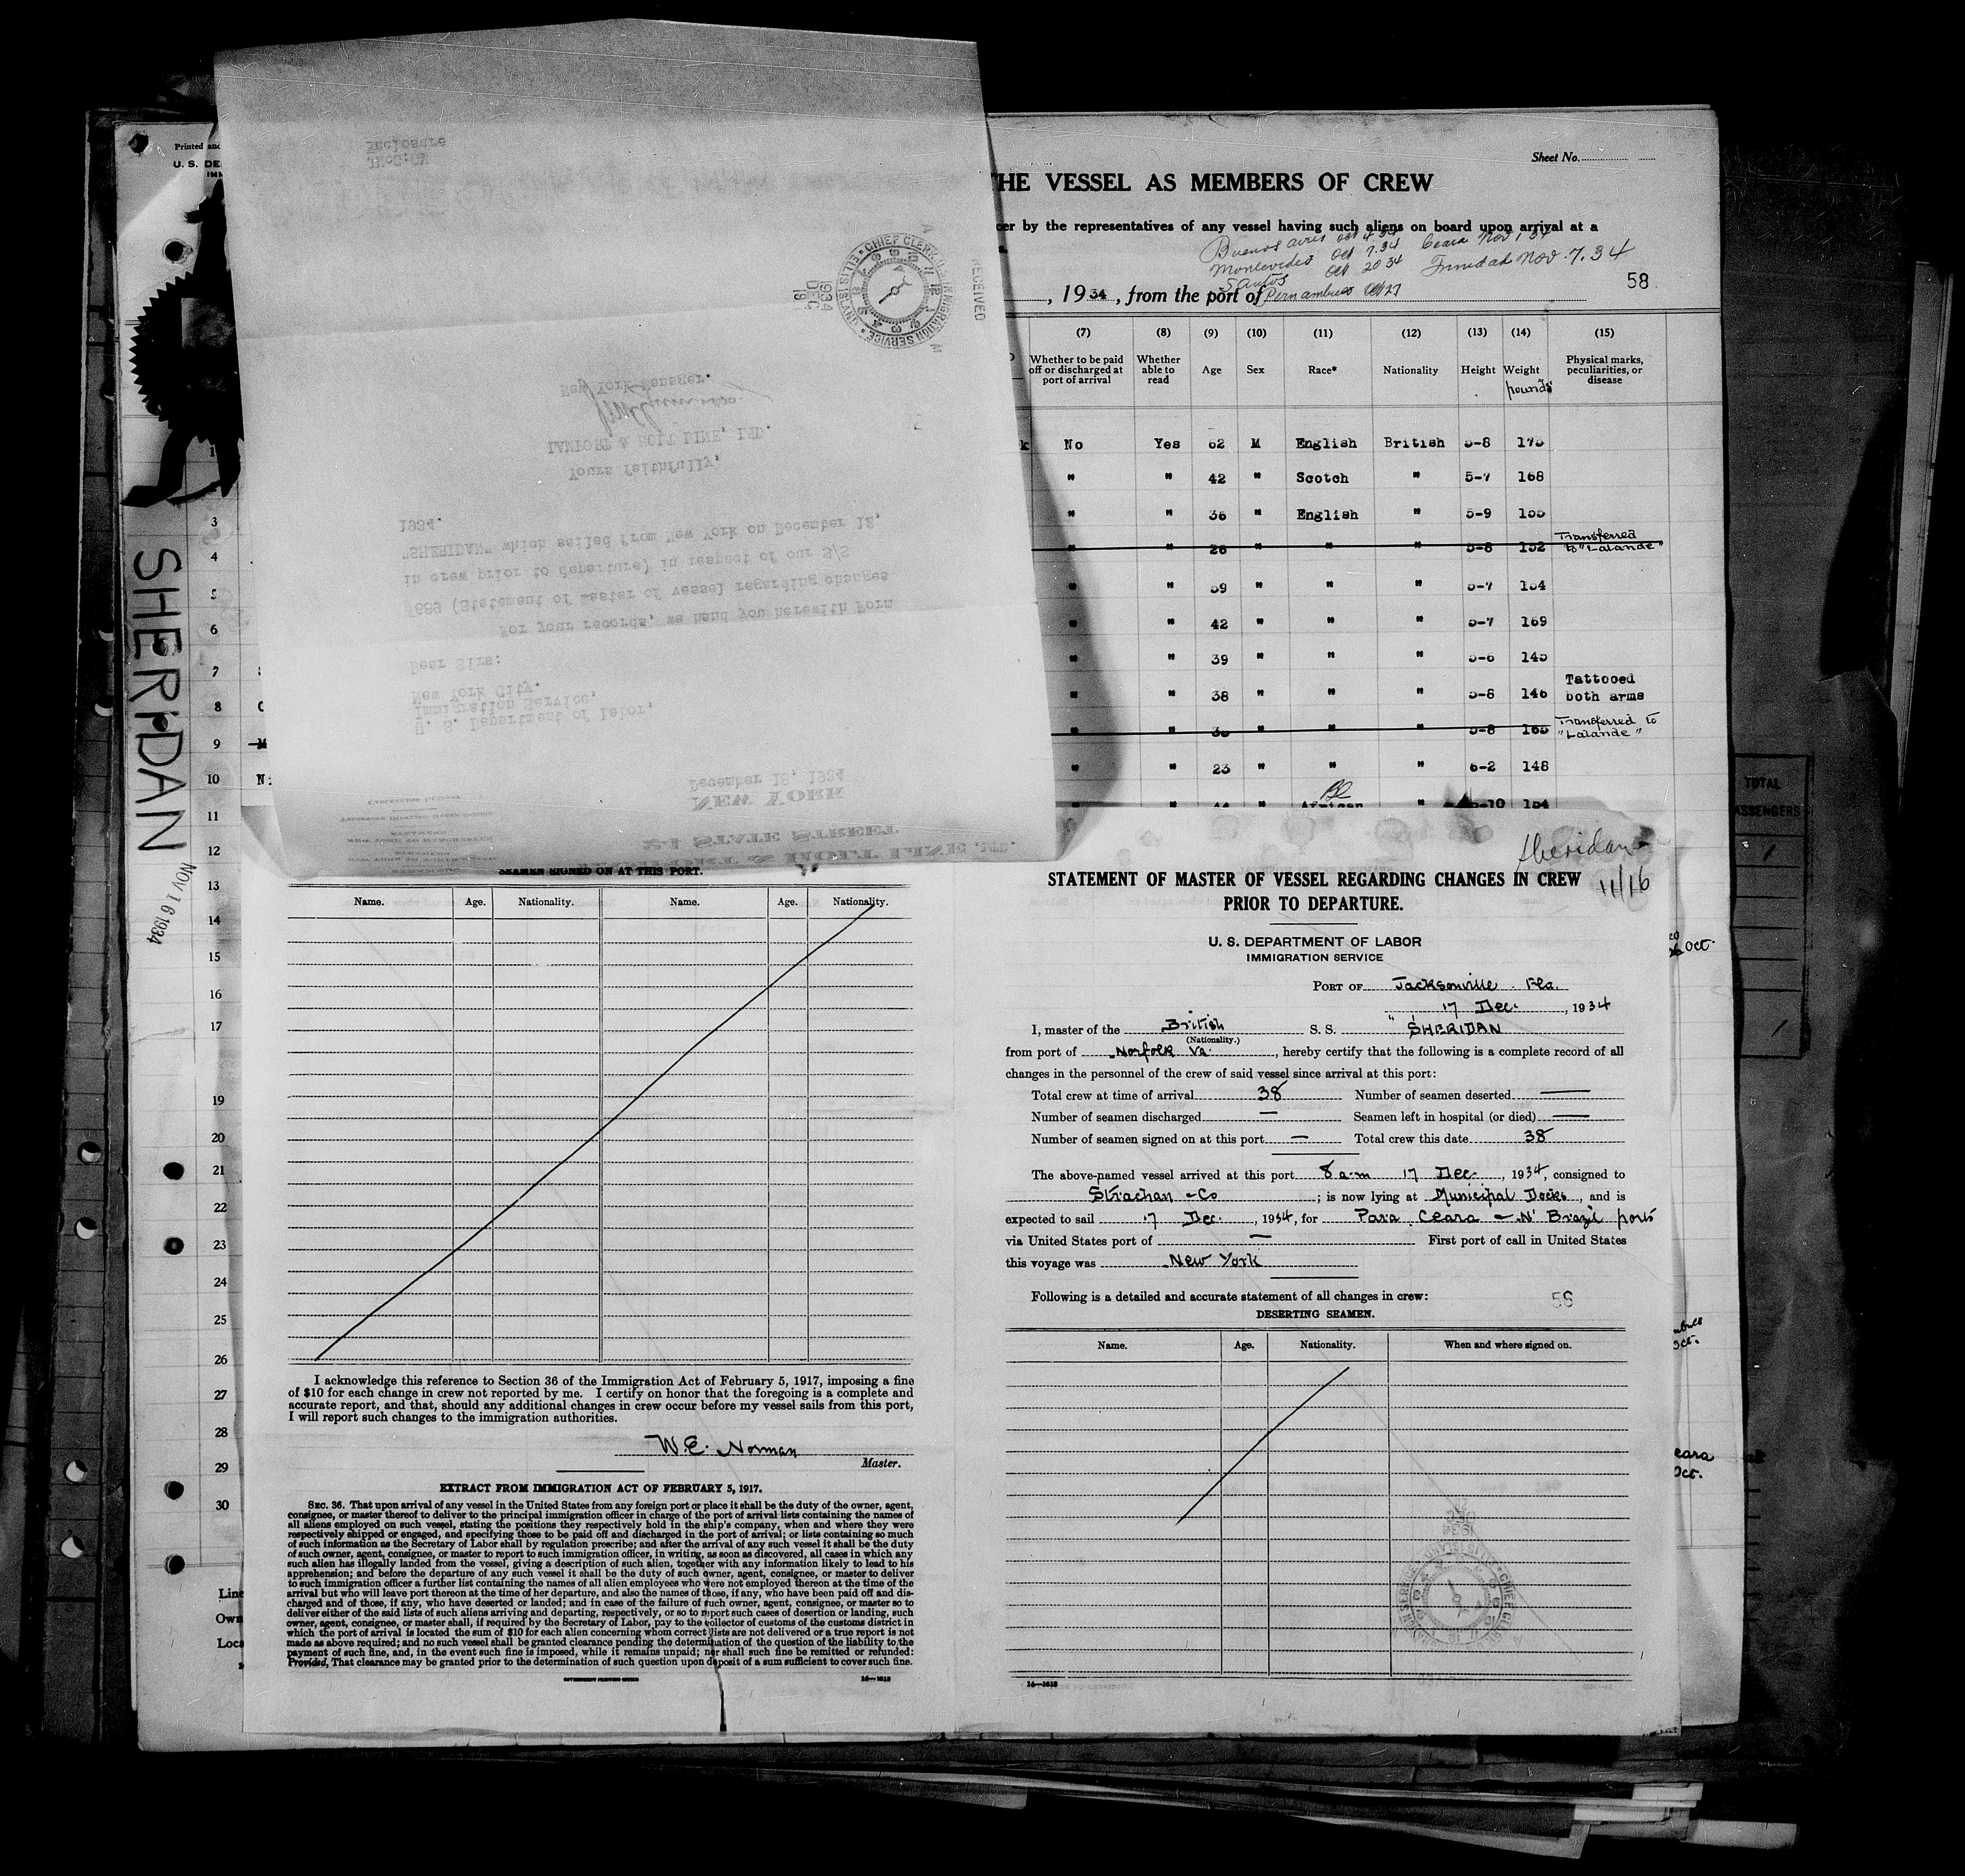 Printed and
U. S. DE
IMM
Sheet No.
HE VESSEL AS MEMBERS OF CREW
cer by the representatives of any vessel having such aliens on board upon arrival at a
Buenos Aires Oct 4.34 Ceara Nov 1 34
Montevideo Oct 7.34 Trinidad Nov. 7.34
Santos Oct 20 34
58
, 1934, from the port of Pernambuco Oct 27
(7) (8) (9) (10) (11) (12) (13) (14) (15)
Whether to be paid off or discharged at port of arrival
Whether able to read
Age
Sex
Race*
Nationality
Height
Weight pounds
Physical marks, peculiarities, or disease
1 k No Yes 62 M English British 5-8 175
" " 42 " Scotch " 5-7 168
3 " " 36 " English " 5-9 155
4 " " 26 " " " 5-8 152 Transferred to "Lalande"
5 " " 59 " " " 5-7 154
6 " " 42 " " " 5-7 169
7 " " 39 " " " 5-6 145
8 " " 38 " " " 5-8 146 Tattooed both arms
9 " " " " " 5-8 165 Transferred to "Lalande"
10 " " 23 " " " 6-2 148
11 " " 44 " African " 5-10 154
12
13
14
15
16
17
19
20
21
22
23
24
25
26
27
28
29
30
Line
Own
Loca
SHERIDAN
NOV 16 1934
TOTAL
ASSENGERS
1
1
Oct.
Oct.
ceara
Oct.
LAMPORT & HOLT LINE, LTD.
24 STATE STREET
NEW YORK
December 18, 1934
U. S. Department of Labor,
Immigration Service,
New York City.
Dear Sirs:
For your records, we hand you herewith Form
#689 (Statement of master of vessel regarding changes
in crew prior to departure) in respect of our S/S
"SHERIDAN" which sailed from New York on December 12,
1934.
Yours faithfully,
LAMPORT & HOLT LINE, LTD.
New York Manager.
Enclosure
RECEIVED
CHIEF CLERK U.S. IMMIGRATION SERVICE ELLIS ISLAND
1934
DEC
19
SEAMEN SIGNED ON AT THIS PORT.
Name. Age. Nationality. Name. Age. Nationality.
I acknowledge this reference to Section 36 of the Immigration Act of February 5, 1917, imposing a fine
of $10 for each change in crew not reported by me. I certify on honor that the foregoing is a complete and
accurate report, and that, should any additional changes in crew occur before my vessel sails from this port,
I will report such changes to the immigration authorities.
W.E. Norman
Master.
EXTRACT FROM IMMIGRATION ACT OF FEBRUARY 5, 1917.
SEC. 36. That upon arrival of any vessel in the United States from any foreign port or place it shall be the duty of the owner, agent,
consignee, or master thereof to deliver to the principal immigration officer in charge of the port of arrival lists containing the names of
all aliens employed on such vessel, stating the positions they respectively hold in the ship's company, when and where they were
respectively shipped or engaged, and specifying those to be paid off and discharged in the port of arrival; or lists containing so much
of such information as the Secretary of Labor shall by regulation prescribe; and after the arrival of any such vessel it shall be the duty
of such owner, agent, consignee, or master to report to such immigration officer, in writing, as soon as discovered, all cases in which any
such alien has illegally landed from the vessel, giving a description of such alien, together with any information likely to lead to his
apprehension; and before the departure of any such vessel it shall be the duty of such owner, agent, consignee, or master to deliver
to such immigration officer a further list containing the names of all alien employees who were not employed thereon at the time of the
arrival but who will leave port thereon at the time of her departure, and also the names of those, if any, who have been paid off and dis-
charged and of those, if any, who have deserted or landed; and in case of the failure of such owner, agent, consignee, or master so to
deliver either of the said lists of such aliens arriving and departing, respectively, or so to report such cases of desertion or landing, such
owner, agent, consignee, or master shall, if required by the Secretary of Labor, pay to the collector of customs of the customs district in
which the port of arrival is located the sum of $10 for each alien concerning whom correct lists are not delivered or a true report is not
made as above required; and no such vessel shall be granted clearance pending the determination of the question of the liability to the
payment of such fine, and, in the event such fine is imposed, while it remains unpaid; nor shall such fine be remitted or refunded:
Provided, That clearance may be granted prior to the determination of such question upon deposit of a sum sufficient to cover such fine.
GOVERNMENT PRINTING OFFICE 14—1613
Sheridan
11/16
STATEMENT OF MASTER OF VESSEL REGARDING CHANGES IN CREW
PRIOR TO DEPARTURE.
U. S. DEPARTMENT OF LABOR
IMMIGRATION SERVICE
PORT OF Jacksonville Fla.
17 Dec., 1934
I, master of the British S. S. "SHERIDAN
(Nationality.)
from port of Norfolk Va., hereby certify that the following is a complete record of all
changes in the personnel of the crew of said vessel since arrival at this port:
Total crew at time of arrival 38 Number of seamen deserted —
Number of seamen discharged — Seamen left in hospital (or died) —
Number of seamen signed on at this port — Total crew this date 38
The above-named vessel arrived at this port 8 a.m 17 Dec., 1934, consigned to
Strachan & Co; is now lying at Municipal Docks, and is
expected to sail 17 Dec., 1934, for Para Ceara & N' Brazil ports
via United States port of — First port of call in United States
this voyage was New York
Following is a detailed and accurate statement of all changes in crew:
58
DESERTING SEAMEN.
Name. Age. Nationality. When and where signed on.
14—1613